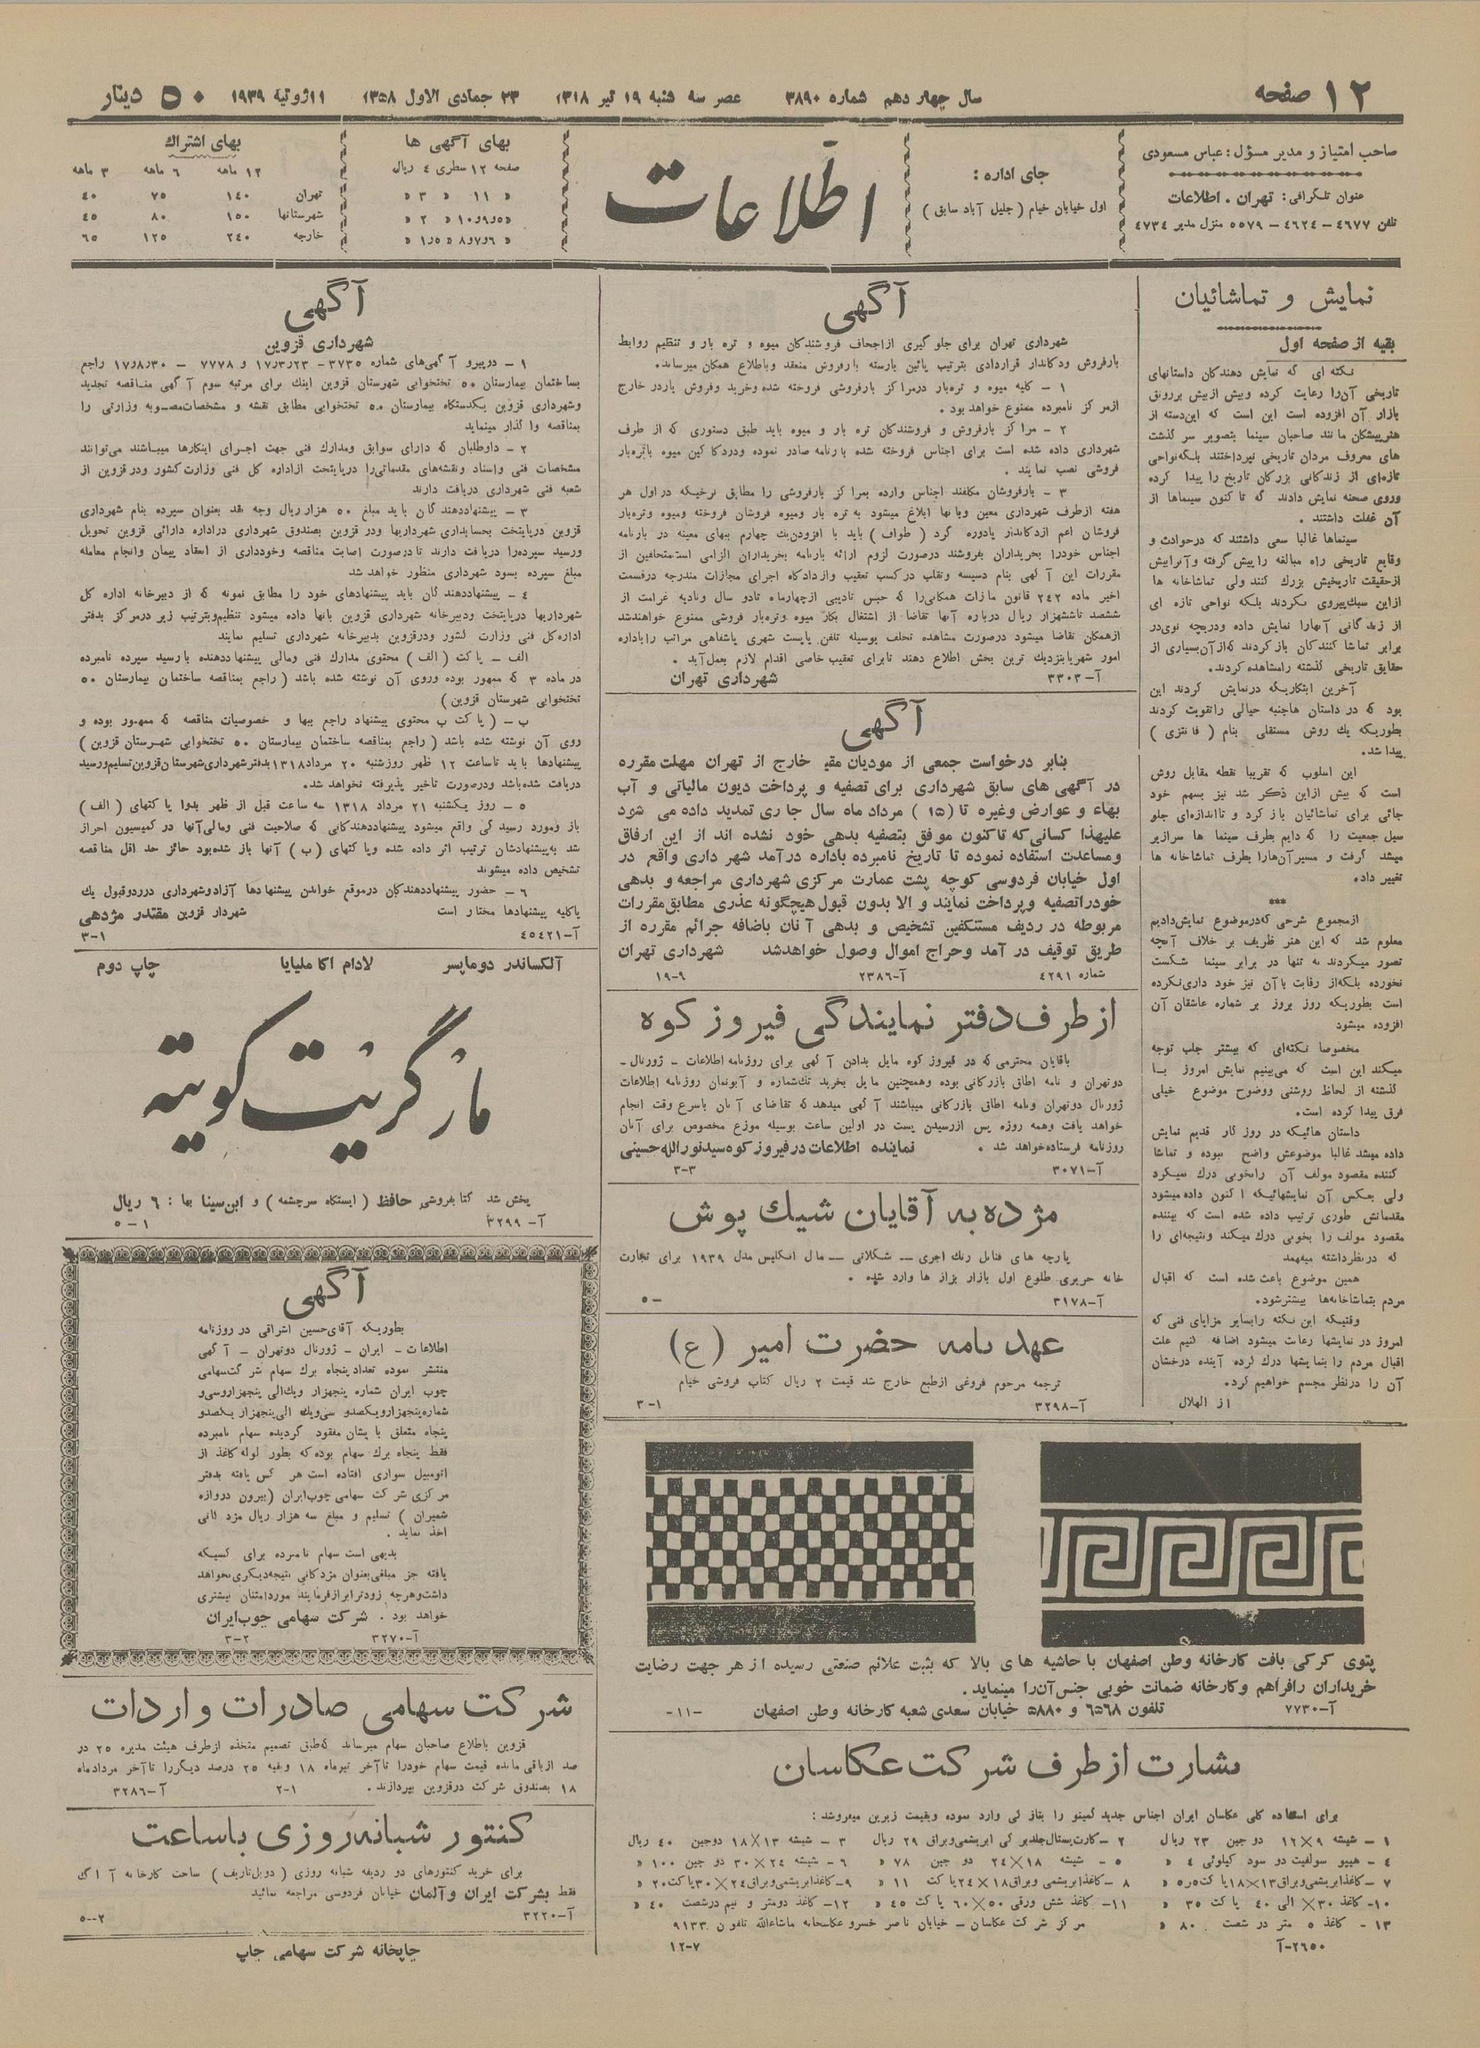 ۱۲ صفحه
سال چهاردهم شماره ۳۸۹۰
عصر سه شنبه ۱۹ تیر ۱۳۱۸
۲۳ جمادی الاول ۱۳۵۸
۱۱ژوئیهٔ ۱۹۳۹
۵۰ دینار
صاحب امتیاز و مدیر مسؤل: عباس مسعودی
عنوان تلگرافی: تهران . اطلاعات
تلفن ۴۶۷۷ – ۴۶۲۴ – ۵۵۷۹ منزل مدیر ۴۷۳۴
جای اداره :
اول خیابان خیام ( جلیل آباد سابق )
اطّلاعات
بهای آگهی ها
صفحه ۱۲ سطری ۴ ریال
« ۱۱ « ۳ «
« ۵و۹و۱۰ « ۲ «
« ۶و۷و۸ « ۱٫۵ «
بهای اشتراك
۱۲ ماهه ۶ ماهه ۳ ماهه
تهران ۱۴۰ ۷۵ ۴۰
شهرستانها ۱۵۰ ۸۰ ۴۵
خارجه ۲۴۰ ۱۲۵ ۶۵
نمایش و تماشائیان
بقیه از صفحه اول
نکته ای که نمایش دهندگان داستانهای
تاریخی آن را رعایت کرده وبیش از پیش بررونق
بازار آن افزوده است این است که این‌دسته از
هنرپیشگان مانند صاحبان سینما بتصویر سر گذشت
های معروف مردان تاریخی نپرداختند بلکه‌نواحی
تازه‌ای از زندگانی بزرگان تاریخ را پیدا کرده
وروی صحنه نمایش دادند که تا کنون سینماها از
آن غفلت داشتند .
سینماها غالبا سعی داشتند که درحوادث و
وقایع تاریخی راه مبالغه را پیش گرفته وآنرابیش
ازحقیقت تاریخیش بزرگ کنند ولی تماشاخانه ها
ازاین سبك‌پیروی نکردند بلکه نواحی تازه ای
از زندگانی آنهارا نمایش داده ودریچه نوی‌در
برابر تماشا کنندگان باز کردند که‌از‌آن‌بسیاری از
حقایق تاریخی گذشته رامشاهده کردند.
آخرین ابتکاریکه درنمایش کردند این
بود که در داستان هاجنبه خیالی راتقویت کردند
بطوریکه يك روش مستقلی بنام ( فانتزی )
پیدا شد.
این اسلوب که تقریبا نقطه مقابل روش
است که پیش ازاین ذکر شد نیز بسهم خود
جائی برای تماشائیان باز کرد و تااندازه‌ای جلو
سیل جمعیت را که دایم بطرف سینما ها سرازیر
میشد گرفت و مسیرآن‌هارا بطرف تماشاخانه ها
تغییر داد.
***
ازمجموع شرحی که‌درموضوع نمایش‌دادیم
معلوم شد که این هنر ظریف بر خلاف آنچه
تصور میکردند نه تنها در برابر سینما شکست
نخورده بلکه‌از رقابت باآن نیز خود داری‌نکرده
است بطوریکه روز بروز بر شماره عاشقان آن
افزوده میشود
مخصوصا نکته‌ای که بیشتر جلب توجه
میکند این است که می‌بینیم نمایش امروز با
گذشته از لحاظ روشنی ووضوح موضوع خیلی
فرق پیدا کرده است.
داستان هائیکه در روز گار قدیم نمایش
داده میشد غالبا موضوعش واضح نبوده و تماشا
کننده مقصود مولف آن رابخوبی درك نمیکرد
ولی بعکس آن نمایشهائیکه اکنون داده‌میشود
مقدماتش طوری ترتیب داده شده است که بیننده
مقصود مولف را بخوبی درك میکند ونتیجه‌ای را
که در‌نظرداشته میفهمد
همین موضوع باعث شده است که اقبال
مردم بتماشاخانه‌ها بیشترشود.
وقتیکه این نکته راباسایر مزایای فنی که
امروز در نمایشها رعایت میشود اضافه کنیم علت
اقبال مردم را بنمایشها درك کرده آینده درخشان
آن را درنظر مجسم خواهیم کرد.
از الهلال
آگهی
شهرداری تهران برای جلو گیری ازاجحاف فروشندگان میوه و تره بار و تنظیم روابط
بارفروش ودکاندار قراردادی بترتیب پائین بارسته بارفروش منعقد وباطلاع همگان میرساند.
۱ – کلیه میوه و تره‌بار درمراکز بارفروشی فروخته شده وخرید وفروش باردر خارج
ازمرکز نامبرده ممنوع خواهد بود .
۲ – مراکز بارفروش و فروشندگان تره بار و میوه باید طبق دستوری که از طرف
شهرداری داده شده است برای اجناس فروخته شده بارنامه صادر نموده ودردکاکین میوه باتره‌بار
فروشی نصب نمایند .
۳ – بارفروشان مکلفند اجناس وارده بمراکز بارفروشی را مطابق نرخیکه دراول هر
هفته ازطرف شهرداری معین وبآنها ابلاغ میشود به تره بار ومیوه فروشان فروخته ومیوه وتره‌بار
فروشان اعم ازدکاندار یادوره گرد ( طواف ) باید با افزودن‌يك چهارم ببهای معینه در بارنامه
اجناس خودرا بخریداران بفروشند درصورت لزوم ارائه بارنامه بخریداران الزامی است‌متخلفین از
مقررات این آگهی بنام دسیسه وتقلب درکسب تعقیب وازدادگاه اجرای مجازات مندرجه درقسمت
اخیر ماده ۲۴۲ قانون مجازات همگانی‌را که حبس تادیبی ازچهارماه تادو سال وتادیه غرامت از
ششصد تاششهزار ریال درباره آنها تقاضا از اشتغال بکار میوه وتره‌بار فروشی ممنوع خواهندشد
ازهمگان تقاضا میشود درصورت مشاهده تخلف بوسیله تلفن یاپست شهری یاشفاهی مراتب راباداره
امور شهریابنزدیك ترین بخش اطلاع دهند تابرای تعقیب خاصی اقدام لازم بعمل‌آید .
آ–۳۳۰۳ شهرداری تهران
آگهی
بنابر درخواست جمعی از مودیان مقیم خارج از تهران مهلت مقرره
در آگهی های سابق شهرداری برای تصفیه و پرداخت دیون مالیاتی و آب
بهاء و عوارض وغیره تا (۱۵ ) مرداد ماه سال جاری تمدید داده می شود
علیهذا کسانی‌که تاکنون موفق بتصفیه بدهی خود نشده اند از این ارفاق
ومساعدت استفاده نموده تا تاریخ نامبرده باداره درآمد شهر داری واقع در
اول خیابان فردوسی کوچه پشت عمارت مرکزی شهرداری مراجعه و بدهی
خودراتصفیه وپرداخت نمایند و الا بدون قبول هیچگونه عذری مطابق‌مقررات
مربوطه در ردیف مستنکفین تشخیص و بدهی آنان باضافه جرائم مقرره از
طریق توقیف در آمد وحراج اموال وصول خواهدشد شهرداری تهران
شماره ۴۲۹۱ آ–۲۳۸۶ ۱۹–۹
از طرف دفتر نمایندگی فیروز کوه
باقایان محترمی که در فیروز کوه مایل بدادن آگهی برای روزنامه اطلاعات – ژورنال–
دوتهران و نامه اطاق بازرگانی بوده وهمچنین مایل بخرید تك‌شماره و آبونمان روزنامه اطلاعات
ژورنال دوتهران ونامه اطاق بازرگانی میباشند آگهی میدهد که تقاضای آنان باسرع وقت انجام
خواهد یافت وهمه روزه پس ازرسیدن پست در اولین ساعت بوسیله موزع مخصوص برای آنان
روزنامه فرستاده‌خواهد شد . نماینده اطلاعات در فیروز کوه سیدنورالله حسینی
آ–۳۰۷۱ ۳–۳
مژده به آقایان شیك پوش
پارچه های فلانل رنك آجری — شکلاتی — مال انگلیس مدل ۱۹۳۹ برای تجارت
خانه حریری طلوع اول بازار بزاز ها وارد شده .
آ–۳۱۷۸ –۵
عهد نامه حضرت امیر ( ع )
ترجمه مرحوم فروغی ازطبع خارج شد قیمت ۲ ریال کتاب فروشی خیام
آ–۳۲۹۸ ۱–۳
پتوی کرکی بافت کارخانه وطن اصفهان با حاشیه های بالا که بثبت علائم صنعتی رسیده از هر جهت رضایت
خریداران رافراهم وکارخانه ضمانت خوبی جنس‌آن‌را مینماید.
آ–۷۷۳۰ تلفون ۶۵۶۸ و ۵۸۸۰ خیابان سعدی شعبه کارخانه وطن اصفهان –۱۱–
بشارت از طرف شرکت عکاسان
برای استفاده کلی عکاسان ایران اجناس جدید لمینو را بتازگی وارد نموده وبقیمت زیرین میفروشد :
۱ – شیشه ۹×۱۲ دو جین ۲۳ ریال ۲ –کارت‌پستال‌جلدبرگی ابریشمی‌وبراق ۲۹ ریال ۳ – شیشه ۱۳×۱۸ دوجین ۴۰ ریال
۴ – هیپو سولفیت دو سود کیلوئی ۴ « ۵ – شیشه ۱۸×۲۴ دو جین ۷۸ « ۶ – شیشه ۲۴×۳۰ دو جین ۱۰۰ «
۷ –کاغذابریشمی‌وبراق۱۳×۱۸پاکت ۵٫۵ « ۸ –کاغذابریشمی وبراق۱۸×۲۴پاکت ۱۱ « ۹–کاغذابریشمی‌وبراق۲۴×۳۰پاکت۲۰ «
۱۰– کاغذ ۳۰× الی ۴۰ پاکت ۳۵ « ۱۱– کاغذ شش ورقی ۵۰×۶۰ پاکت ۴۵ « ۱۲– کاغذ دومتر و نیم درشصت ۴۰ «
۱۳ – کاغذ ۵ متر در شصت ۸۰ « مرکز شرکت عکاسان – خیابان ناصر خسرو عکاسخانه ماشاءالله تلفون ۹۱۳۳
۲۶۵۰–آ ۱۲–۷
آگهی
شهرداری قزوین
۱ – درپیرو آگهی‌های شماره ۳۷۳۵– ۱۷٫۳٫۲۳ و ۷۷۷۸ – ۱۷٫۸٫۳۰ راجع
بساختمان بیمارستان ۵۰ تختخوابی شهرستان قزوین اینك برای مرتبه سوم آگهی مناقصه تجدید
وشهرداری قزوین یکدستگاه بیمارستان ۵۰ تختخوابی مطابق نقشه و مشخصات‌مصوبه وزارتی را
بمناقصه واگذار مینماید
۲ – داوطلبان که دارای سوابق ومدارك فنی جهت اجرای اینکارها میباشند می‌توانند
مشخصات فنی واسناد ونقشه‌های مقدماتی‌را درپایتخت ازاداره کل فنی وزارت کشور ودرقزوین از
شعبه فنی شهرداری دریافت دارند
۳ – پیشنهاددهندگان باید مبلغ ۵۰ هزارریال وجه نقد بعنوان سپرده بنام شهرداری
قزوین درپایتخت بحسابداری شهرداریها ودر قزوین بصندوق شهرداری دراداره دارائی قزوین تحویل
ورسید سپرده‌را دریافت دارند تادرصورت اصابت مناقصه وخودداری از انعقاد پیمان وانجام معامله
مبلغ سپرده بسود شهرداری منظور خواهد شد
۴ – پیشنهاددهندگان باید پیشنهادهای خود را مطابق نمونه که از دبیرخانه اداره کل
شهرداریها درپایتخت ودبیرخانه شهرداری قزوین بآنها داده میشود تنظیم‌وبترتیب زیر درمرکز بدفتر
اداره‌کل فنی وزارت کشور ودرقزوین بدبیرخانه شهرداری تسلیم نمایند
الف – پاکت (الف ) محتوی مدارك فنی ومالی پیشنهاددهنده بارسید سپرده نامبرده
درماده ۳ که ممهور بوده وروی آن نوشته شده باشد ( راجع بمناقصه ساختمان بیمارستان ۵۰
تختخوابی شهرستان قزوین )
ب – ( پاکت ب محتوی پیشنهاد راجع ببها و خصوصیات مناقصه که ممهور بوده و
روی آن نوشته شده باشد ( راجع بمناقصه ساختمان بیمارستان ۵۰ تختخوابی شهرستان قزوین )
پیشنهادها باید تاساعت ۱۲ ظهر روزشنبه ۲۰ مرداد۱۳۱۸بدفترشهرداری‌شهرستان‌قزوین‌تسلیم‌ورسید
دریافت شده‌باشد ودرصورت تاخیر پذیرفته نخواهد شد.
۵ – روز یکشنبه ۲۱ مرداد ۱۳۱۸ سه ساعت قبل از ظهر بدوا پاکتهای ( الف )
باز ومورد رسیدگی واقع میشود پیشنهاددهندگانی که صلاحیت فنی ومالی‌آنها در کمیسیون احراز
شد به‌پیشنهادشان ترتیب اثر داده شده وپاکتهای ( ب ) آنها باز شده‌بود حائز حد اقل مناقصه
تشخیص داده میشوند
۶ – حضور پیشنهاددهندگان درموقع خواندن پیشنهادها آزادوشهرداری درردوقبول يك
یاکلیه پیشنهادها مختار است شهردار قزوین مقتدر مژدهی
آ–۴۵۴۲۱ ۳–۱
آلکساندر دوماپسر لادام اکا ملیایا چاپ دوم
مارگریت گوتیه
پخش شد کتابفروشی حافظ ( ایستگاه سرچشمه ) و ابن‌سینا بها : ۶ ریال
آ– ۳۲۹۹ ۱–۵
آگهی
بطوریکه آقای‌حسین اشراقی در روزنامه
اطلاعات – ایران – ژورنال دوتهران – آگهی
منتشر نموده تعداد پنجاه برك سهام شرکت‌سهامی
چوب ایران شماره پنجهزار ويك‌الی پنجهزاروسی‌و
شماره‌پنجهزارویکصدو سی‌ويك الی‌پنجهزار یکصدو
پنجاه متعلق بایشان مفقود گردیده سهام نامبرده
فقط پنجاه برك سهام بوده که بطور لوله کاغذ از
اتومبیل سواری افتاده است هر کس یافته بدفتر
مرکزی شرکت سهامی چوب‌ایران (بیرون دروازه
شمیران ) تسلیم و مبلغ سه هزار ریال مژدگانی
اخذ نماید .
بدیهی است سهام نامبرده برای کسیکه
یافته جز مبلغی‌بعنوان مژدگانی نتیجه‌دیگری‌نخواهد
داشت‌وهرچه زودترابرازفرمایند موردامتنان بیشتری
خواهد بود . شرکت سهامی چوب‌ایران
آ–۳۲۷۰ ۲–۳
شرکت سهامی صادرات و اردات
قزوین باطلاع صاحبان سهام میرساند که‌طبق تصمیم متخذه ازطرف هیئت مدیره ۲۵ در
صد ازباقی مانده قیمت سهام خودرا تاآخر تیرماه ۱۸ وبقیه ۲۵ درصد دیگررا تاآخر مردادماه
۱۸ بصندوق شرکت درقزوین بپردازند. ۱–۲ آ–۳۲۸۶
کنتور شبانه روزی باساعت
برای خرید کنتورهای دو ردیفه شبانه روزی ( دوبل‌تاریف ) ساخت کارخانه آاگ
فقط بشرکت ایران وآلمان خیابان فردوسی مراجعه نمائید
آ–۳۲۲۰ ۲–۵
چاپخانه شرکت سهامی چاپ